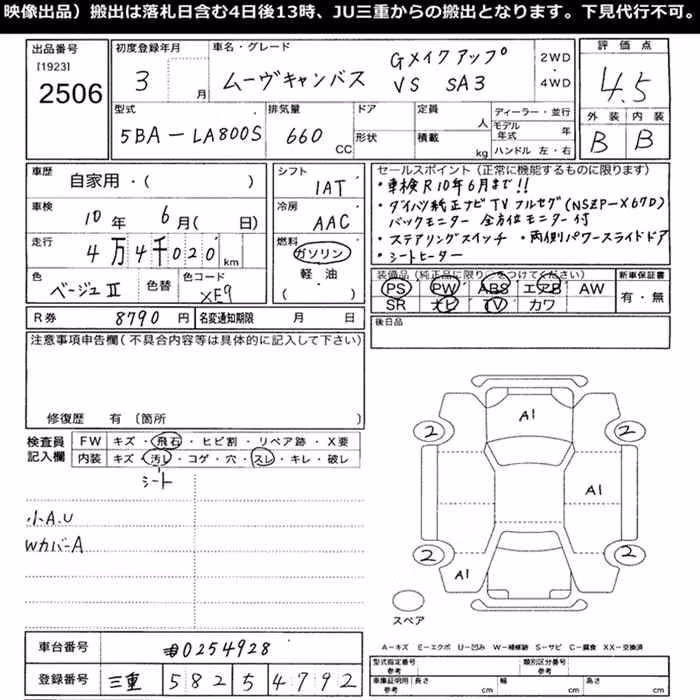 映像出品）搬出は落札日含む4日後13時、JU三重からの搬出となります。下見代行不可。
出品番号 [1923] 2506
初度登録年月 3 月
車名・グレード ムーヴキャンバス Gメイクアップ VS SA3
2WD・4WD
評価点 4.5
外装 内装
B B
型式 5BA-LA800S
排気量 660 CC
ドア 形状
定員 人 積載 kg
ディーラー・並行
モデル年式 年
ハンドル 左・右
車歴 自家用・( )
車検 10年 6月( 日)
走行 4万4千020km
色 ベージュⅡ 色替 色コード XE9
シフト 1AT
冷房 AAC
燃料 ガソリン 軽油 ( )
セールスポイント(正常に機能するものに限ります)
・車検R10年6月まで!!
・ダイハツ純正ナビTVフルセグ(NSZP-X67D)
バックモニター 全方位モニター付
・ステアリングスイッチ ・両側パワースライドドア
・シートヒーター
装備品(純正品に限り○をつけてください) 新車保証書
PS PW ABS エアB AW 有・無
SR ナビ TV カワ
R券 8790円 名変通知期限 月 日
後日品
注意事項申告欄(不具合内容等は具体的に記入して下さい)
修復歴 有 (箇所 )
検査員記入欄
FW キズ・飛石・ヒビ割・リペア跡・X要
内装 キズ・汚レ・コゲ・穴・スレ・キレ・破レ
シート
小A.U
WカバーA
A1
2 2
A1
2 2
A1
スペア
A−キズ E−エクボ U−凹み W−補修跡 S−サビ C−腐食 XX−交換済
車台番号 0254928
登録番号 三重 582 5 4792
型式指定番号 参考 類別区分番号 参考
車庫証明用 参考 長さ cm 幅 cm 高さ cm